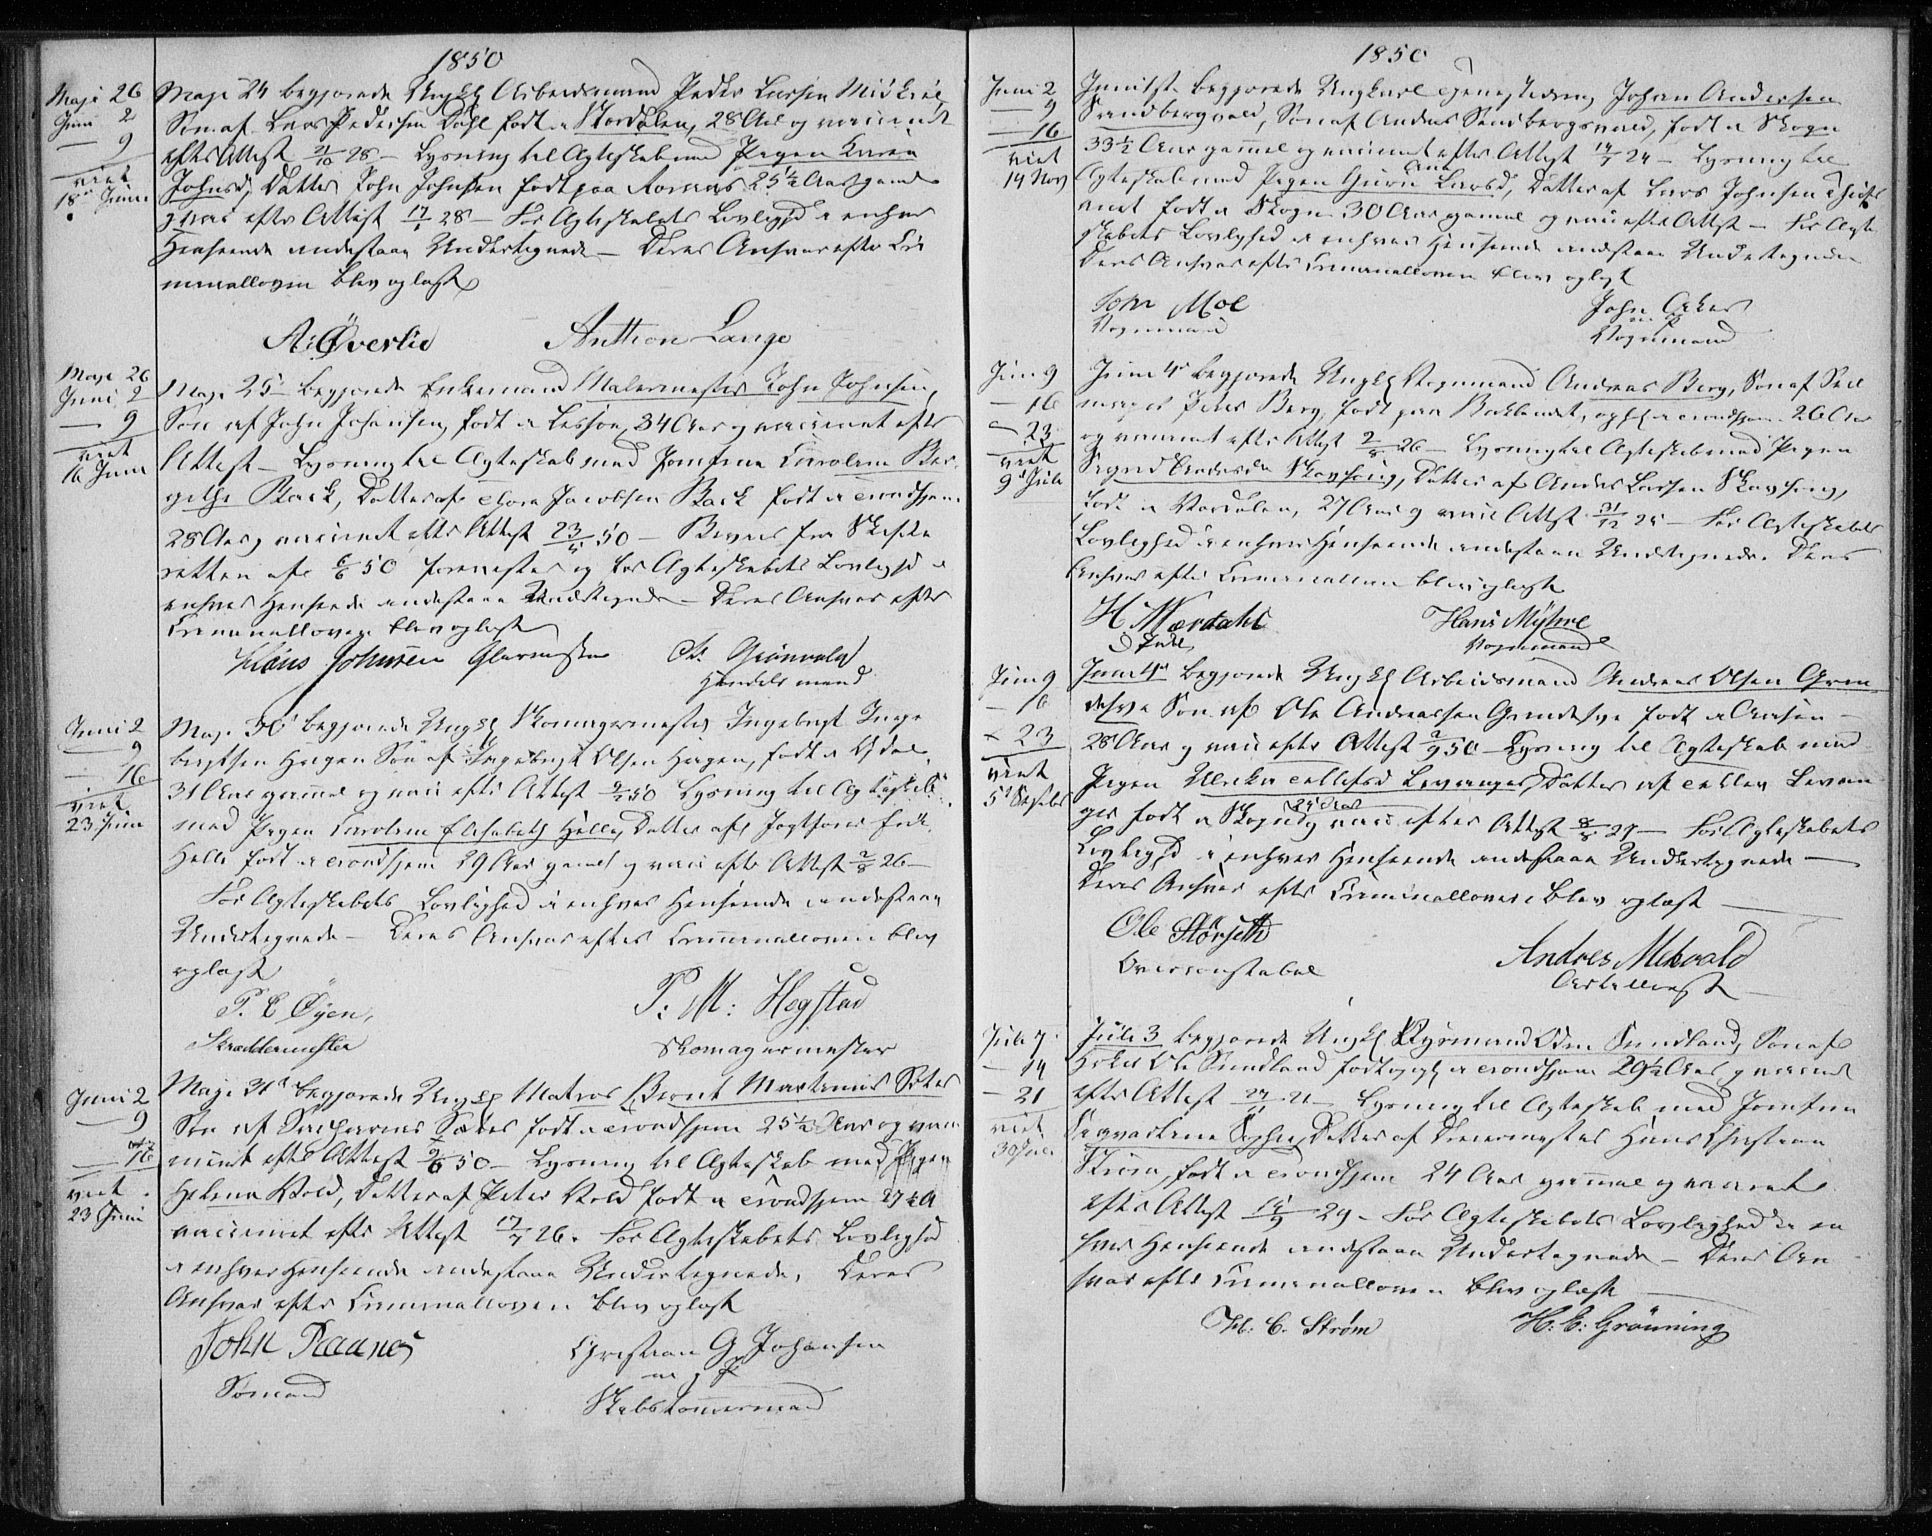 1850
Maji 26
Juni 2
— 9
viet
18de Juni
Maji 24 begjærede Ungk. Arbeidsmand Peder Larsen
Søn af Lars Pedersen Dahl født i Stordalen, 28 Aar og vaccineret
efter Attest 21/10 28 — Lysning til Ægteskab med Pigen Karen
Johnsd, Datter John Johnsen født paa 25½ Aar gammel
og vac efter Attest 17/ 28 — For Ægteskabets Lovlighed i enhver
Henseende indestaae Undertegnede — Deres Ansvar efter Cri
minalloven blev oplæst
A: Øverlie Anthon Lange
Maji 26
Juni 2
— 9
viet
16 Juni
Maji 25 begjærede Enkemand Malermester John Johnsen,
Søn af John Johansen, født i Lessøe, 34 Aar og vaccineret efter
Attest — Lysning til Ægteskab med Jomfrue Caroline Ber
githe Back, Datter af Thore Jacobsen Back født i Trondhjem
28 Aar og vaccineret efter Attest 23/ 50 — Beviis fra Skifte
retten af 6/6 50 forevistes og for Ægteskabets Lovlighed i
enhver Henseende indestaae Undertegnede — Deres Ansvar efter
Criminalloven blev oplæst
Hans Johnsen Glarmester Grönvold
Handelsmand
Juni 2
9
— 16
viet
23 Juni
Maji 30 begjærede Ungk. Skomagermester Ingebrigt Inge
brigtsen Hagen Søn af Ingebrigt Olsen Hagen, født i
31 Aar gammel og vac efter Attest 50 Lysning til Ægteskab
med Pigen Caroline Elisabeth Helle, Datter af
Helle født i Trondhjem 29 Aar gammel og vac efter Attest 2/8 26 —
For Ægteskabets Lovlighed i enhver Henseende indestaae
Undertegnede — Deres Ansvar efter Criminalloven blev
oplæst
P. C Øyen, P: M: Hegstad
Skræddermester Skomagermester
Juni 2
— 9
— 16
viet
23 Juni
Maji 31 begjærede Ungk. Matros Bernt Martinus Sæter
Søn af Zacharias Sæter født i Trondhjem 25½ Aar og vac
cineret efter Attest 2/6 50 — Lysning til Ægteskab med Pigen
Helena Vold, Datter af Peter Vold født i Trondhjem 27½ A
vaccineret efter Attest 17/7 26. For Ægteskabets Lovlighed
i enhver Henseende indestaae Undertegnede, Deres
Ansvar efter Criminalloven blev oplæst
John Raanes Christian G Johansen
Sømand m p P
Skibstømmermand
1850
Juni 2
— 9
— 16
viet
14 Nov
Juni 1ste begjærede Ungkarl Tjenestedreng Johan Andersen
Sandbergvald, Søn af Anders Sandbergsvald, født i Skogn
33½ Aar gammel og vaccineret efter Attest 14/7 24 — Lysning til
Ægteskab med Pigen Guru Larsd, Datter af Lars Johnsen
født i Skogn 30 Aar gammel og vac efter Attest — For Ægte
skabets Lovlighed i enhver Henseende indestaae Undertegnede
Deres Ansvar efter Criminalloven blev oplæst
John Moe John Aker
Vognmand m p P
Vognmand
Juni 9
— 16
— 23
viet
9 Juli
Juni 4 begjærede Ungk. Vognmand Andreas Berg, Søn af Seil
mager Peter Berg, født paa Baklandet, Trondhjem 26 Aar
og vaccineret efter Attest 26 — Lysning til Ægteskab med Pigen
Sigrid Andersd Skavhoug, Datter af Anders Larsen Skavhoug,
født i Værdalen, 27 Aar og vac Attest 31/12 25 — For Ægteskabets
Lovlighed i enhver Henseende indestaae Undertegnede. Deres
Ansvar efter Criminalloven blev oplæst
H Værdahl Hans Myhre
Vognmand
Juni 9
— 16
— 23
viet
5 Septbr
Juni 4de begjærede Ungk. Arbeidsmand Andreas Olsen Grin
Søn af Ole Andreassen født i
28 Aar og vac efter Attest 2/9 50 — Lysning til Ægteskab med
Pigen Ulrika Ellefsd Levanger, Datter af Ellev Levan
ger født i Skogn 25 Aar og vac efter Attest 8/8 27 — For Ægteskabets
Lovlighed i enhver Henseende indestaae Undertegnede —
Deres Ansvar efter Criminalloven blev oplæst
Ole Störseth Andres Mehvald
Overconstabel Artillerist
Juli 7
— 14
— 21
viet
30 Juli
Juli 3 begjærede Ungk. Odin Sundland, Søn af
Ole Sundland født i Trondhjem 29½ Aar og vaccineret
efter Attest 27/ 21 — Lysning til Ægteskab med Jomfrue
Sigvardine Sophie, Datter af Dreiermester Hans Christian
Strøm, født i Trondhjem 24 Aar gammel og vaccineret
efter Attest 14/9 29 — For Ægteskabets Lovlighed i en
hver Henseende indestaae Undertegnede — Deres An
svar efter Criminalloven blev oplæst
H. C. Strøm H. C: Grönning